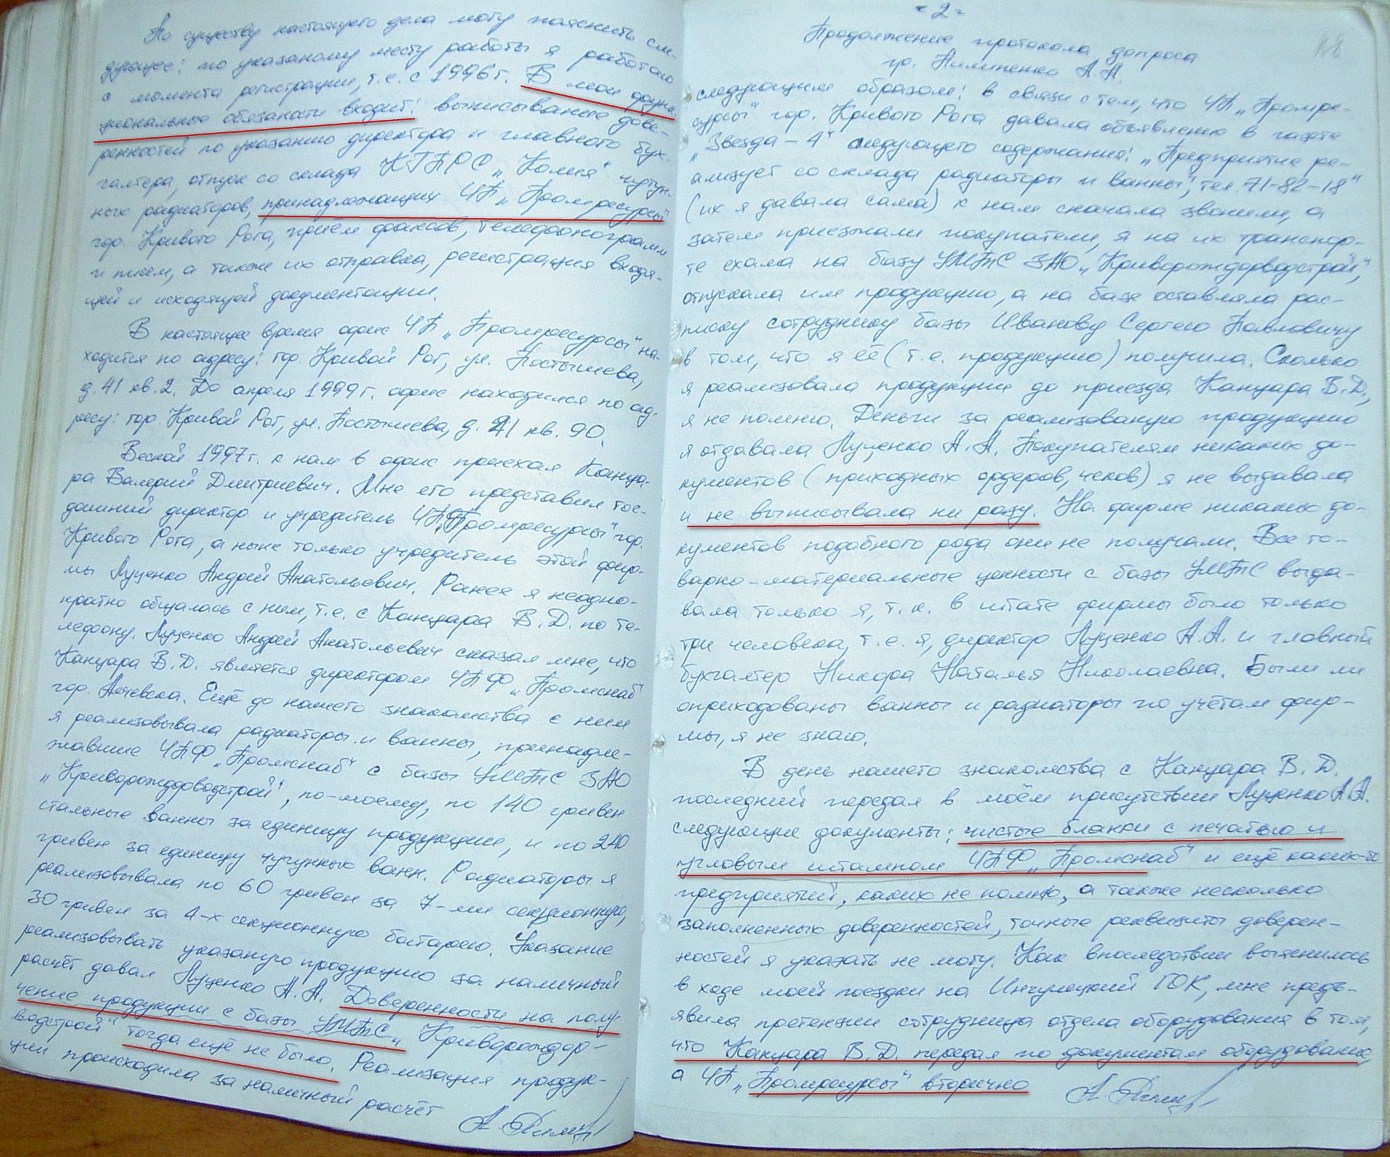 По существу настоящего дела могу пояснить сле-
дующее: по указаному месту работы я работаю
с момента регистрации, т.е. с 1996 г. В мои функ-
циональные обязаности входит: выписывание дове-
ренностей по указанию директора и главного бух-
галтера, отпуск со склада КГПРС „Колия" чугун-
ных радиаторов, принадлежащих ЧП „Промресурсы"
гор. Кривого Рога, приём факсов, телефонограмм
и писем, а также их отправка, регистрация входя-
щей и исходящей документации.
В настоящее время офис ЧП „Промресурсы" на-
ходится по адресу: гор. Кривой Рог, ул. Постышева,
д. 41 кв. 2. До апреля 1999 г. офис находился по ад-
ресу: гор. Кривой Рог, ул. Постышева, д. 41 кв. 90.
Весной 1997 г. к нам в офис приехал Канцу-
ра Валерий Дмитриевич. Мне его представил тог-
дашний директор и учредитель ЧП „Промресурсы" гор.
Кривого Рога, а ныне только учредитель этой фир-
мы Луценко Андрей Анатольевич. Ранее я неодно-
кратно общалась с ним, т.е. с Канцура В.Д. по те-
лефону. Луценко Андрей Анатольевич сказал мне, что
Канцура В.Д. является директором ЧПФ „Промснаб"
гор. Алчевска. Ещё до нашего знакомства с ним
я реализовывала радиаторы и ванны, принадле-
жавшие ЧПФ „Промснаб" с базы УМТС ЗАО
„Криворождорводстрой", по-моему, по 140 гривен
стальные ванны за единицу продукции, и по 240
гривен за единицу чугунных ванн. Радиаторы я
реализовывала по 60 гривен за 7-ми секционную,
30 гривен за 4-х секционную батарею. Указание
реализовывать указаную продукцию за наличный
расчёт давал Луценко А.А. Доверенности на полу-
чение продукции с базы УМТС „Криворождор-
водстрой" тогда ещё не было. Реализация продук-
ции происходила за наличный расчёт
- 2 -
Продолжение протокола допроса
гр. Пилипенко А.Н.
следующим образом: в связи с тем, что ЧП „Промре-
сурсы" гор. Кривого Рога давала объявление в газете
„Звезда-4" следующего содержания: „Предприятие ре-
ализует со склада радиаторы и ванны", тел. 71-82-18"
(их я давала сама) к нам сначала звонили, а
затем приезжали покупатели, я на их транспор-
те ехала на базу УМТС ЗАО „Криворождорводстрой",
отпускала им продукцию, а на базе оставляла рас-
писку сотруднику базы Иванову Сергею Павловичу
в том, что я её (т.е. продукцию) получила. Сколько
я реализовала продукции до приезда Канцура В.Д.,
я не помню. Деньги за реализованую продукцию
я отдавала Луценко А.А. Покупателям никаких до-
кументов (приходных ордеров, чеков) я не выдавала
и не выписывала ни разу. На фирме никаких до-
кументов подобного рода они не получали. Все то-
варно-материальные ценности с базы УМТС выда-
вала только я, т.к. в штате фирмы было только
три человека, т.е. я, директор Луценко А.А. и главный
бухгалтер Никора Наталья Николаевна. Были ли
оприходованы ванны и радиаторы по учётам фир-
мы, я не знаю.
В день нашего знакомства с Канцура В.Д.
последний передал в моём присутствии Луценко А.А.
следующие документы: чистые бланки с печатью и
угловым штампом ЧПФ „Промснаб" и ещё каких-то
предприятий, каких не помню, а также несколько
заполненных доверенностей, точные реквизиты доверен-
ностей я указать не могу. Как впоследствии выяснилось
в ходе моей поездки на Ингулецкий ГОК, мне предъ-
явила претензии сотрудница отдела оборудования в том,
что Канцура В.Д. передал по документам оборудование,
а ЧП „Промресурсы" вторично